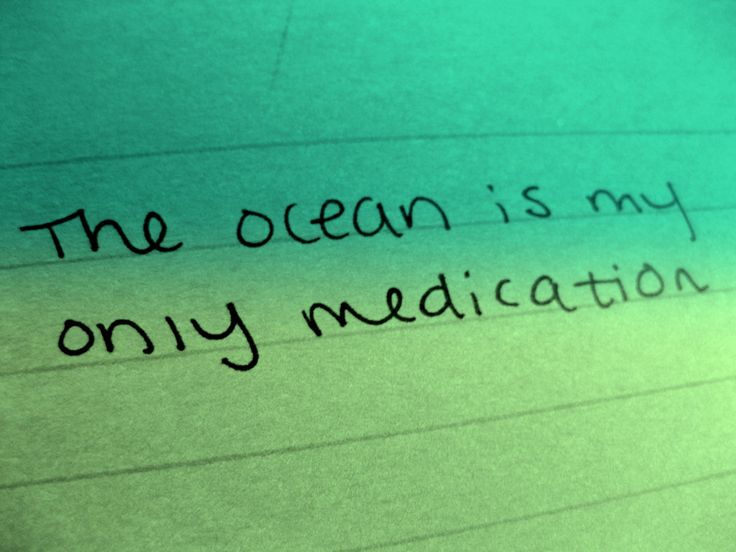 The ocean is my
only medication